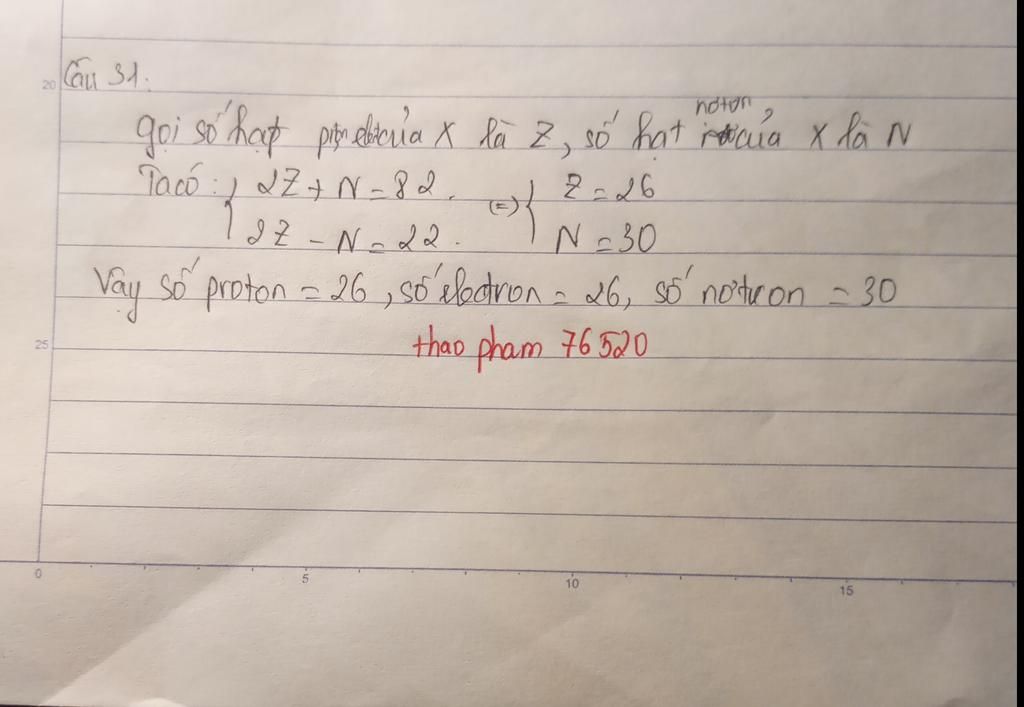 20
Câu 31.
gọi số hạt của X là Z, số hạt nơtơn của X là N
Ta có: { 2Z + N = 82.
2Z - N = 22.
(=) { Z = 26
N = 30
Vậy số proton = 26, số electron = 26, số nơtron = 30
thao pham 76520
25
0 5 10 15